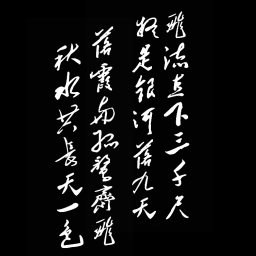 飛流直下三千尺
疑是銀河落九天
落霞與孤鶩齊飛
秋水共長天一色